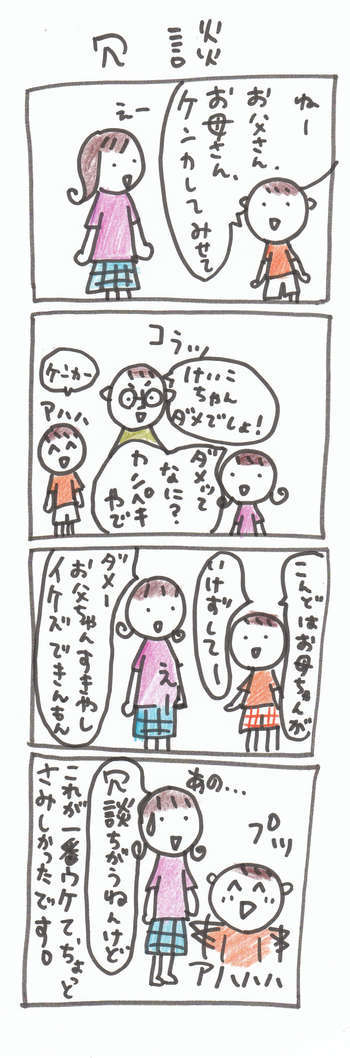 冗談
ねー
お父さん、
お母さん、
ケンカしてみせて
えー
コラッ
けいこ
ちゃん
ダメでしょ!
ケンカー
アハハ
ダメって
なに?
カンペキ
やで
こんどはお母ちゃんが
いけずしてー
えー
ダメー
お父ちゃんすきやし
イケズできんもん
あの…
プッ
冗談
ちがうねんけど
アハハハ
これが一番ウケて、ちょっと
さみしかったです。